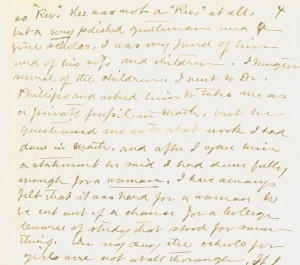 4
as "Rev." Lee was not a "Rev." at all,
but a very polished gentleman and a
fine scholar. I was very fond of him
and of his wife and children. I taught
several of the children. I went to Dr.
Phillips and asked him to take me as
a private pupil in Math, but he
questioned me as to what work I had
done in Math, and after I gave him
a statement he said I had done fully
enough for a woman. I have always
felt that it was hard for a woman to
be cut out of a chance for a College
course of study that stood for some-
thing. In my day the schools for
girls were not at all thorough. If I